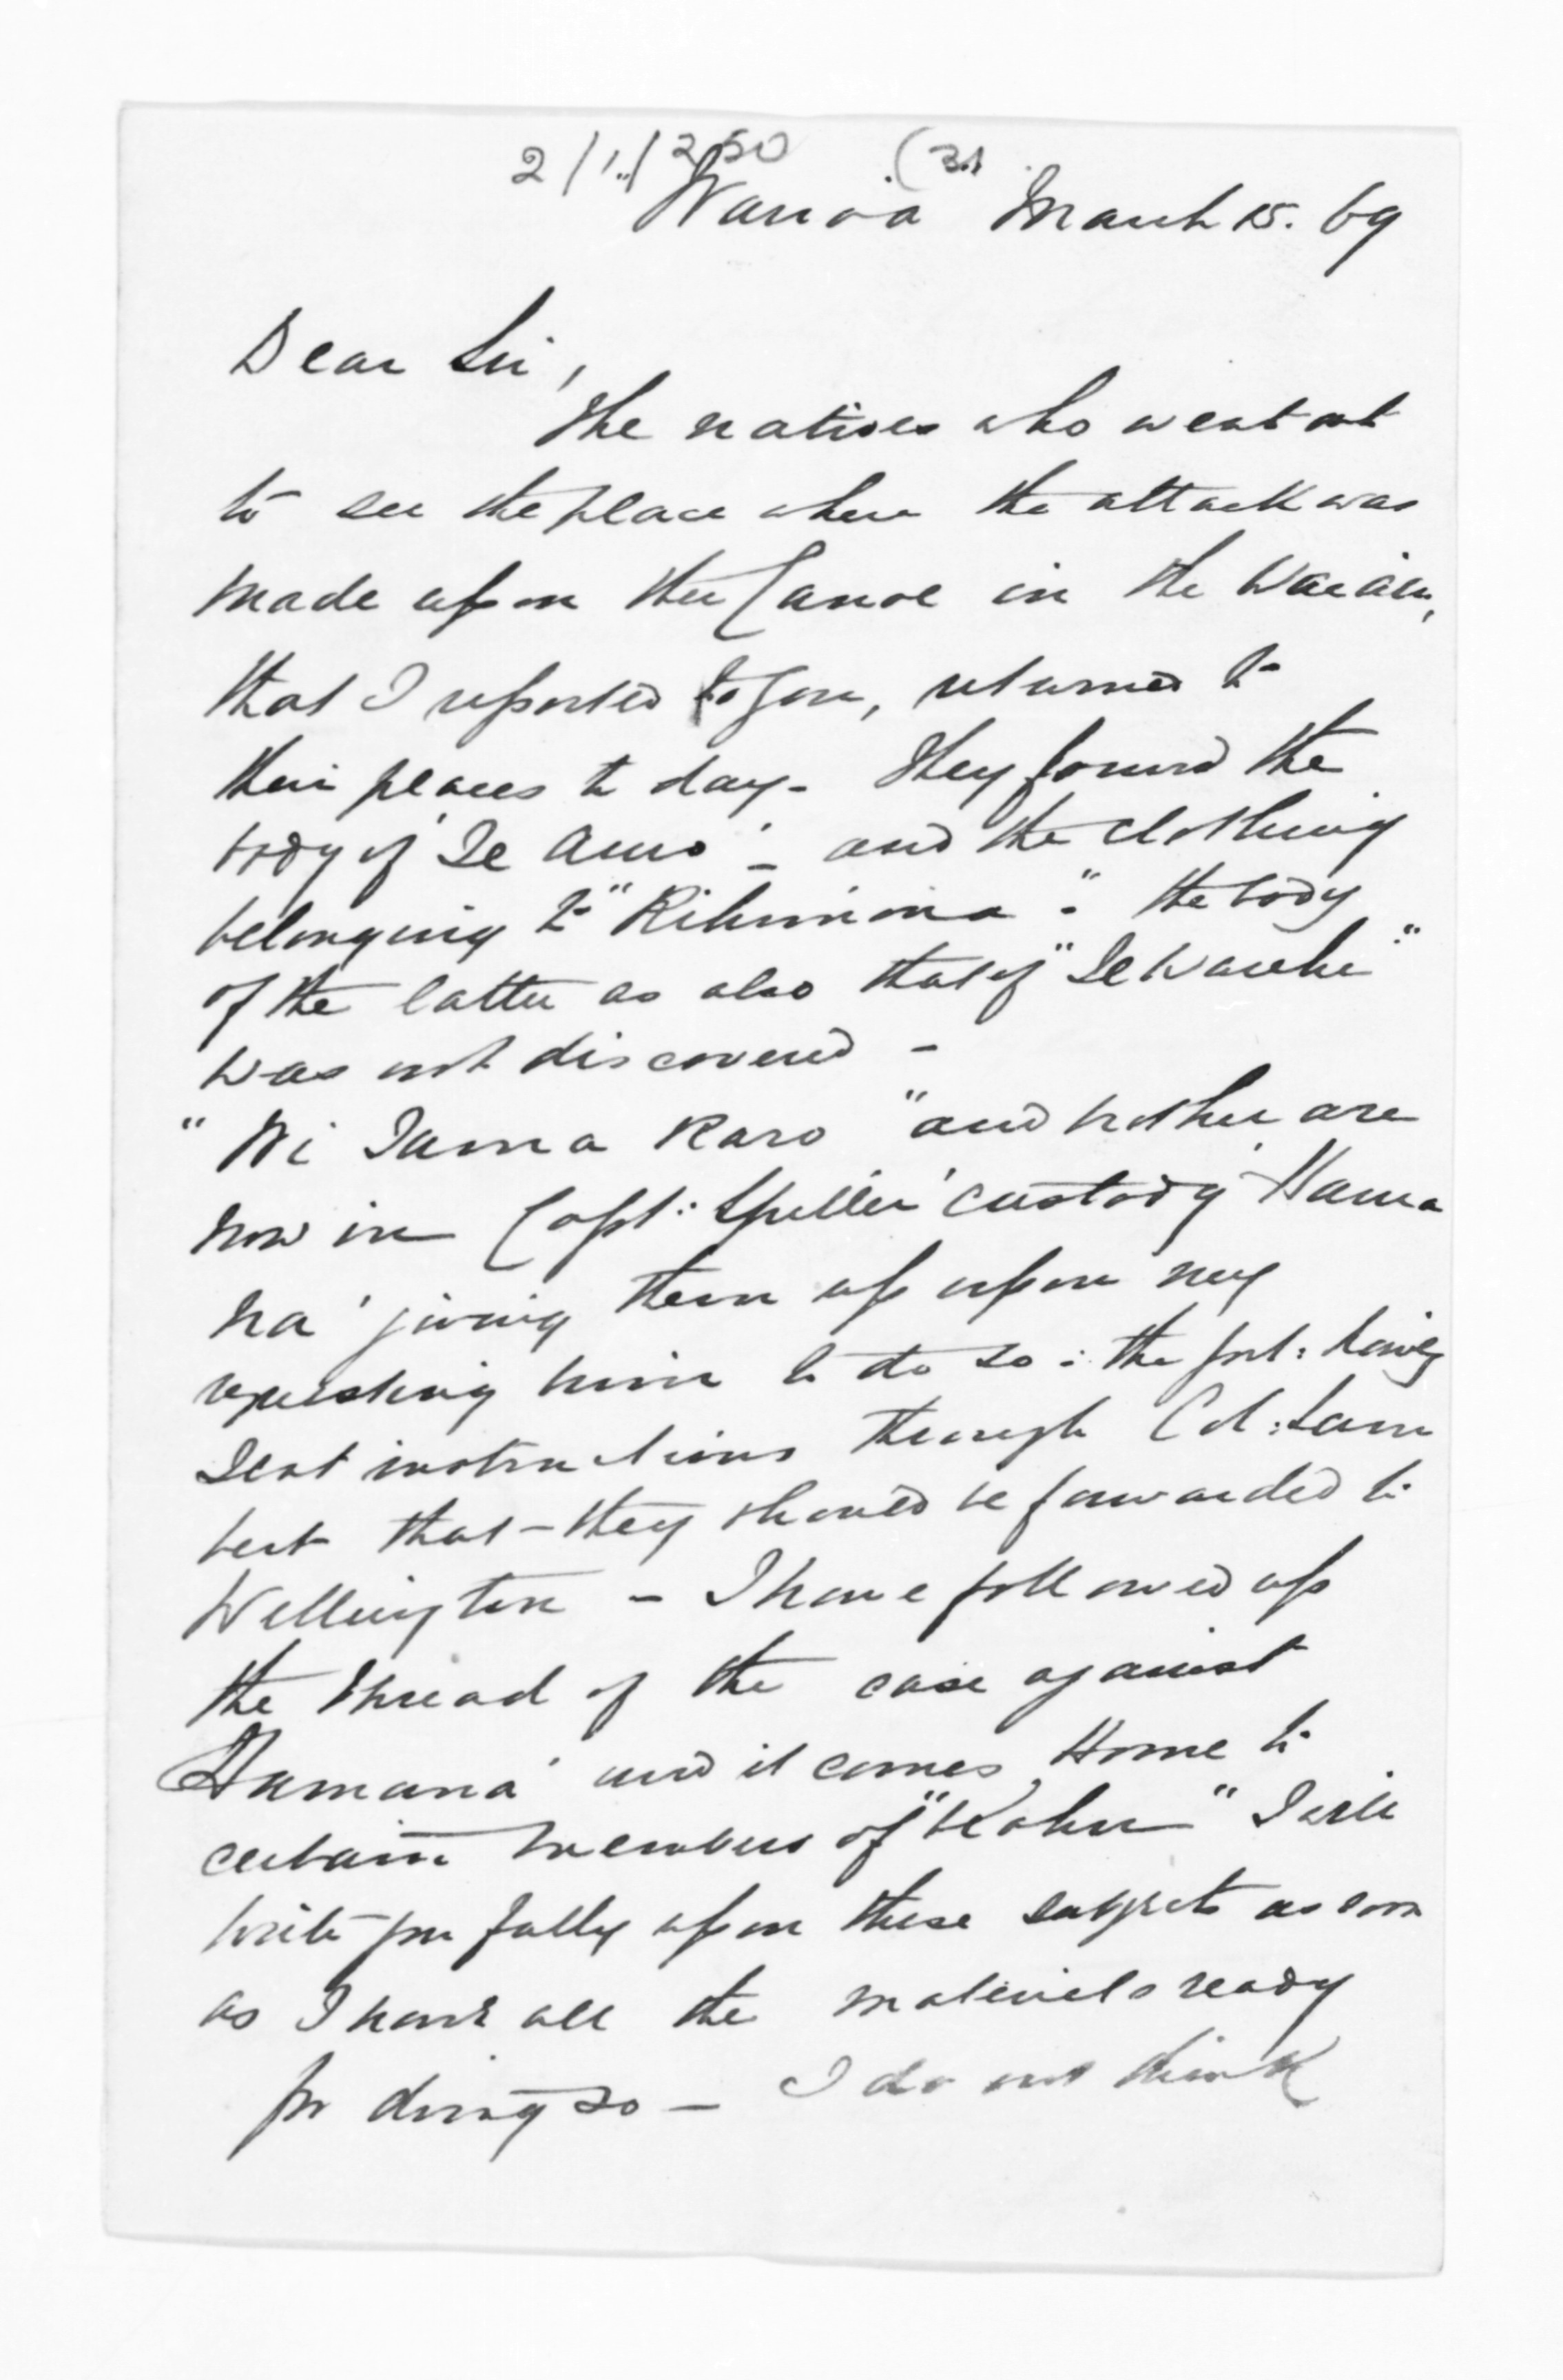 2/1../250 (31
Wairoa March 15. 69
Dear Sir,
The natives who went out
to see the place where the attack was
made upon the Canoe in the Waiau,
that I reported to you, returned to
their places to day - They found the
body of 'Te Amo' - and the clothing
belonging to "Rihimona". the body
of the latter as also that of "Te Waiehu"
was not discovered -
"Wi Tama Karo" and brother are
now in Capt: Spiller' custody 'Hama
na' giving them up upon my
requesting him to do so: the Gvt: having
sent instructions through Col: Lam
bert that - they should be forwarded to
Wellington - I have followed up
the thread of the case against
Hamana' and it comes Home to
certain members of "Kahu" I will
write you fully upon these subjects as soon
as I have all the materials ready
for doing so - I do not think